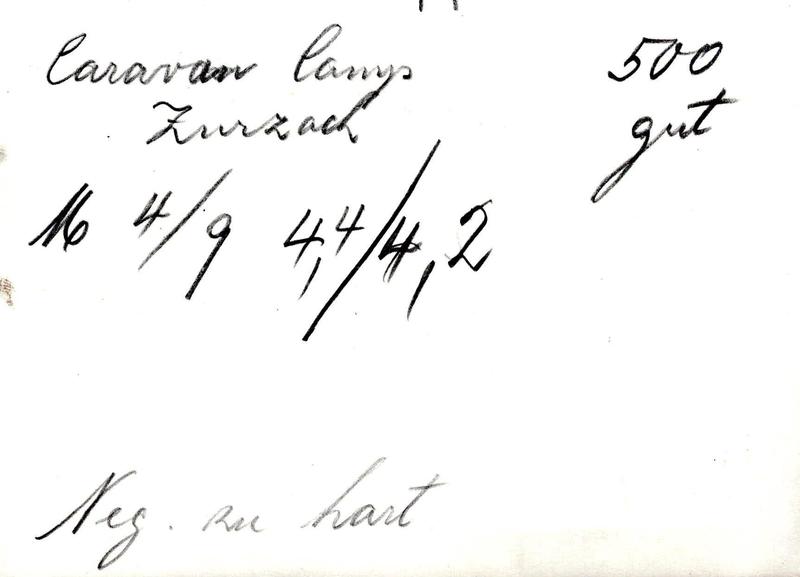 Caravan Camp 500
Zurzach gut
M 4/9 4,4/4,2
Neg. zu hart